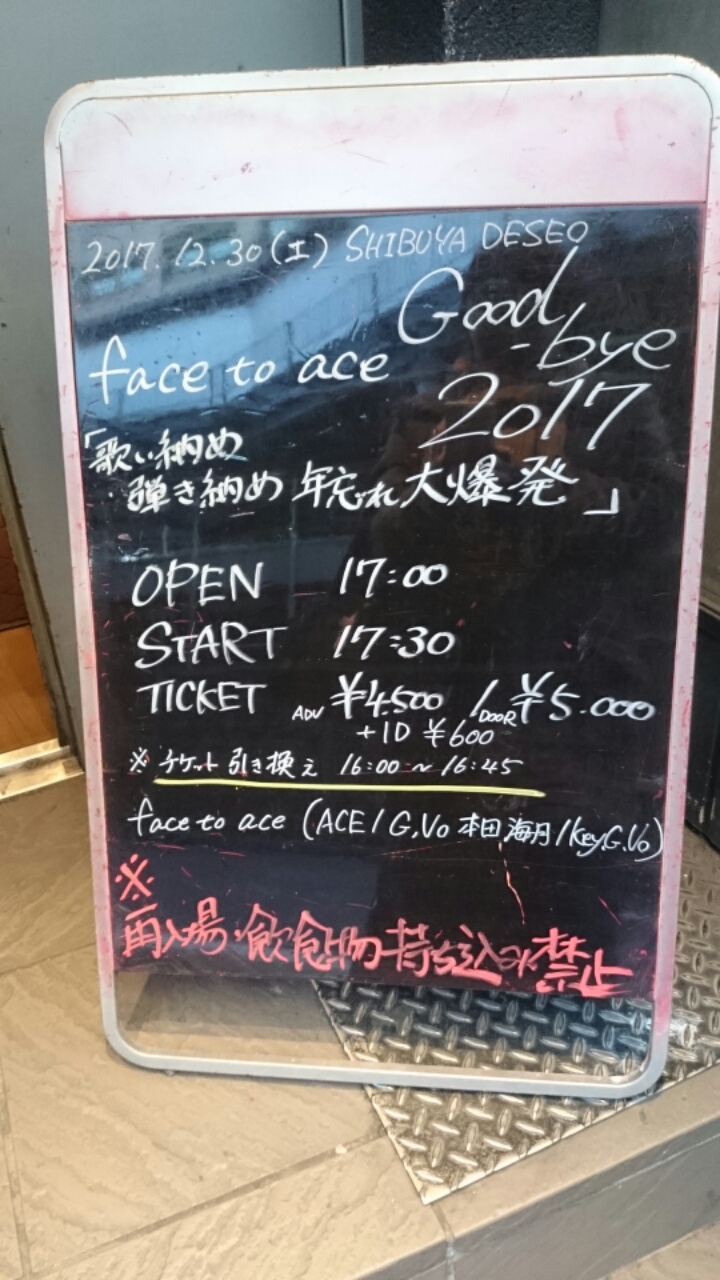 2017.12.30(土) SHIBUYA DESEO
face to ace Good-bye 2017
「歌い納め
弾き納め 年忘れ大爆発」
OPEN 17:00
START 17:30
TICKET ADV ¥4.500 / DOOR ¥5.000
+1D ¥600
※ チケット引き換え 16:00~16:45
face to ace (ACE/G,Vo 本田海月/Key,G,Vo)
※
再入場・飲食物持ち込み禁止